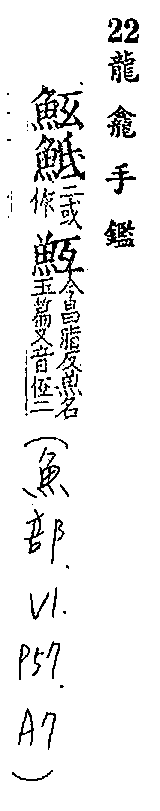 22 龍龕手鑑
二或
作
今昌脂反魚名
玉篇又音二
(魚部. VI. P57. A7)